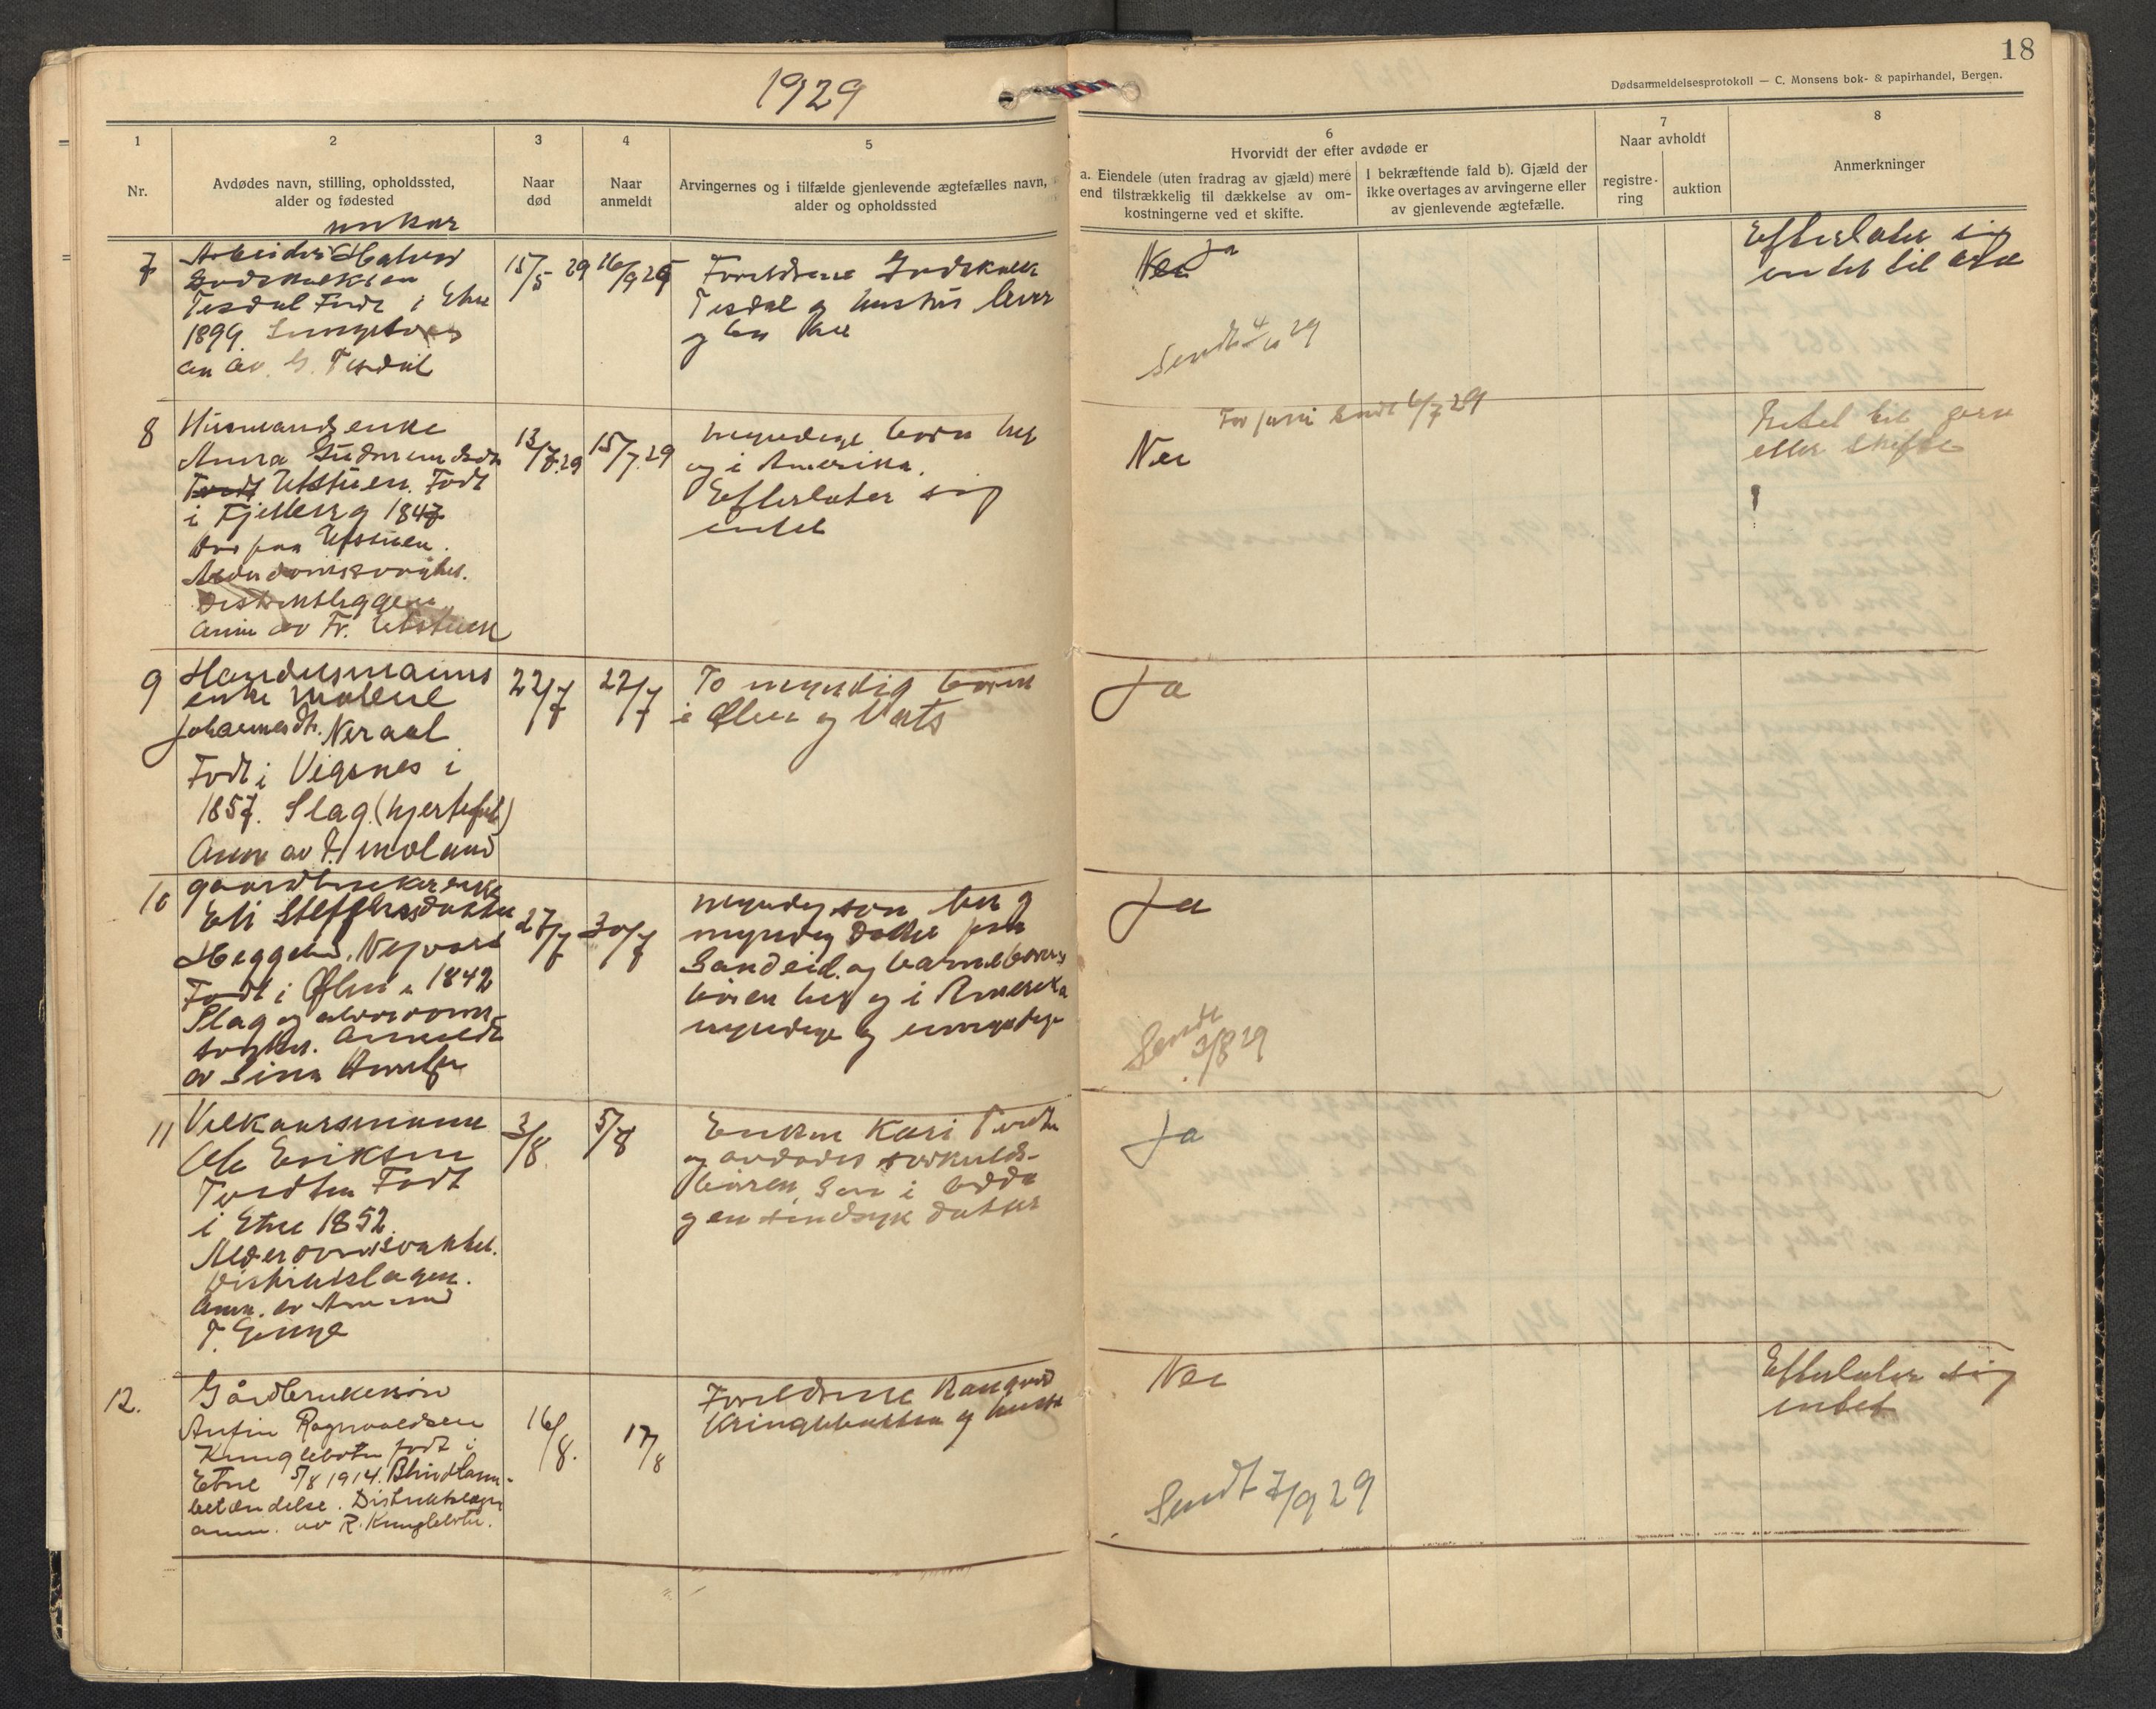 1929
18
Dødsanmeldelsesprotokoll — C. Monsens bok- & papirhandel, Bergen.
1
Nr.
2
Avdødes navn, stilling, opholdssted,
alder og fødested
3
Naar
død
4
Naar
anmeldt
5
Arvingernes og i tilfælde gjenlevende ægtefælles navn,
alder og opholdssted
6
Hvorvidt der efter avdøde er
a. Eiendele (uten fradrag av gjæld) mere
end tilstrækkelig til dækkelse av om-
kostningerne ved et skifte.
I bekræftende fald b). Gjæld der
ikke overtages av arvingerne eller
av gjenlevende ægtefælle.
7
Naar avholdt
registre-
ring
auktion
8
Anmerkninger
7
unkar
Arbeider Halvor
Godskalksen
Tesdal Født i Etne
1899
an av. G. Tesdal
15/5 29
16/9 29
Foreldrene Godskalk
Tesdal og hustru lever
og bor her
Nei
Ja
Sendt 29
Efterlater sig
intet til arv
8
Husmandsenke
Anna Gudmundsdtr
Utstuen. Født
i Fjelberg 1847
Død paa Utstuen.
Distriktslæggen
Anm av Fr. Utstuen
13/7.29
15/7.29
myndige born her
og i Amerika.
Efterlater sig
intet
For juni sendt 6/7 29
Nei
Intet til arv
eller skifte
9
Handelsmanns
enke Malene
Johannesdtr. Neraal
Født i Vigsnes i
1857. Slag. (hjertefeil)
Anm av T. Moland
22/7
27/7
To myndig born
i Ølen og Vats
Ja
10
gaardbrukerenke
Eli Steffensdatter
Heggelund.
Født i Ølen i 1842
Slag og alderdoms-
svakhet. Anmeldt
av Sina
27/7
30/7
myndig son her og
myndig datter paa
Sandeid. og barnebarns
boren her og i Amerika
myndige og umyndige
Ja
Sendt
3/8 29
11
Velkaarsmann
Ole Eriksen
Tvedten Født
i Etne 1852.
Alderdomssvakhet.
Distriktslagen.
Anm. av Amund
T. Grinde
3/8.
5/8
Enken Kari Tvedten
og avdødes særkulds-
boren, Son i Odda
og en sindsyk datter
Ja
12.
Gårdbrukerson
Anfin Ragnvaldsen
Kringlebotn født i
Etne 5/8 1914. Blindtarm-
betændelse. Distriktslagen
anm. av R. Kringlebotn.
16/8.
17/8
Foreldrene Rangvald
Kringlebotten og hustru
Nei
Sendt 7/9 29
Efterlater sig
intet